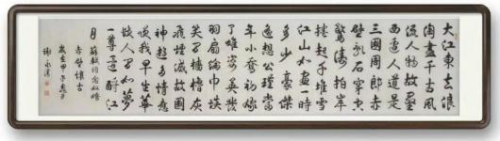 大江東去浪
淘盡千古風
流人物故壘
西邊人道是
三國周郎赤
壁亂石穿空
驚濤拍岸
捲起千堆雪
江山如畫一時
多少豪傑
遙想公瑾當
年小喬初嫁
了雄姿英發
羽扇綸巾談
笑間檣櫓灰
飛煙滅故國
神遊多情應
笑我早生華
髮人間如夢
一尊還酹江
月 蘇軾詞念奴嬌
赤壁懷古